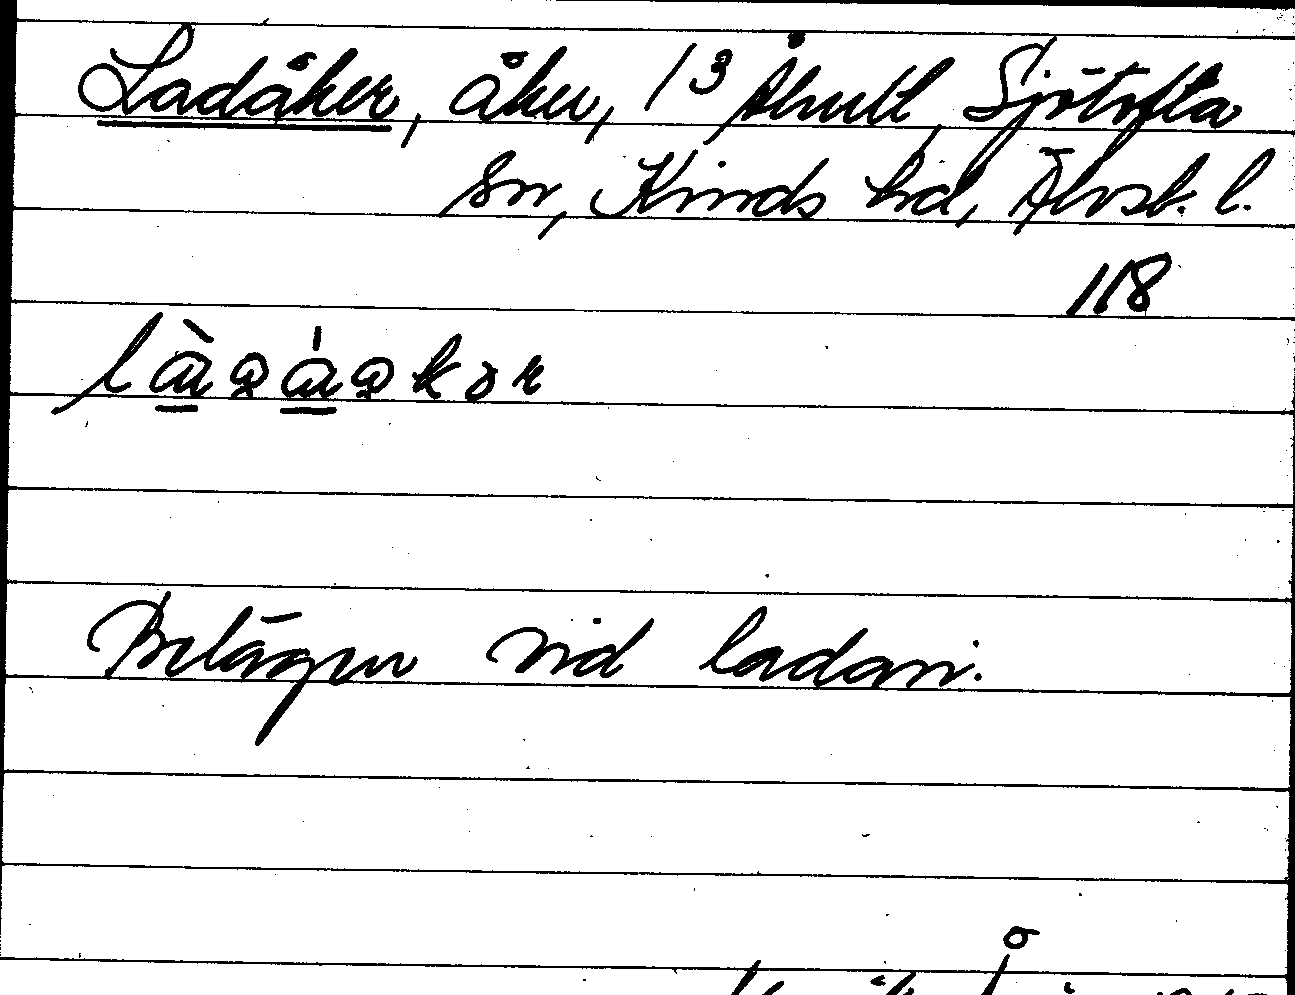 Ladåker, åker, 1³ Åhult, Sjötofta
sn, Kinds hd, Älvsb. l.
118
Belägen vid ladan.